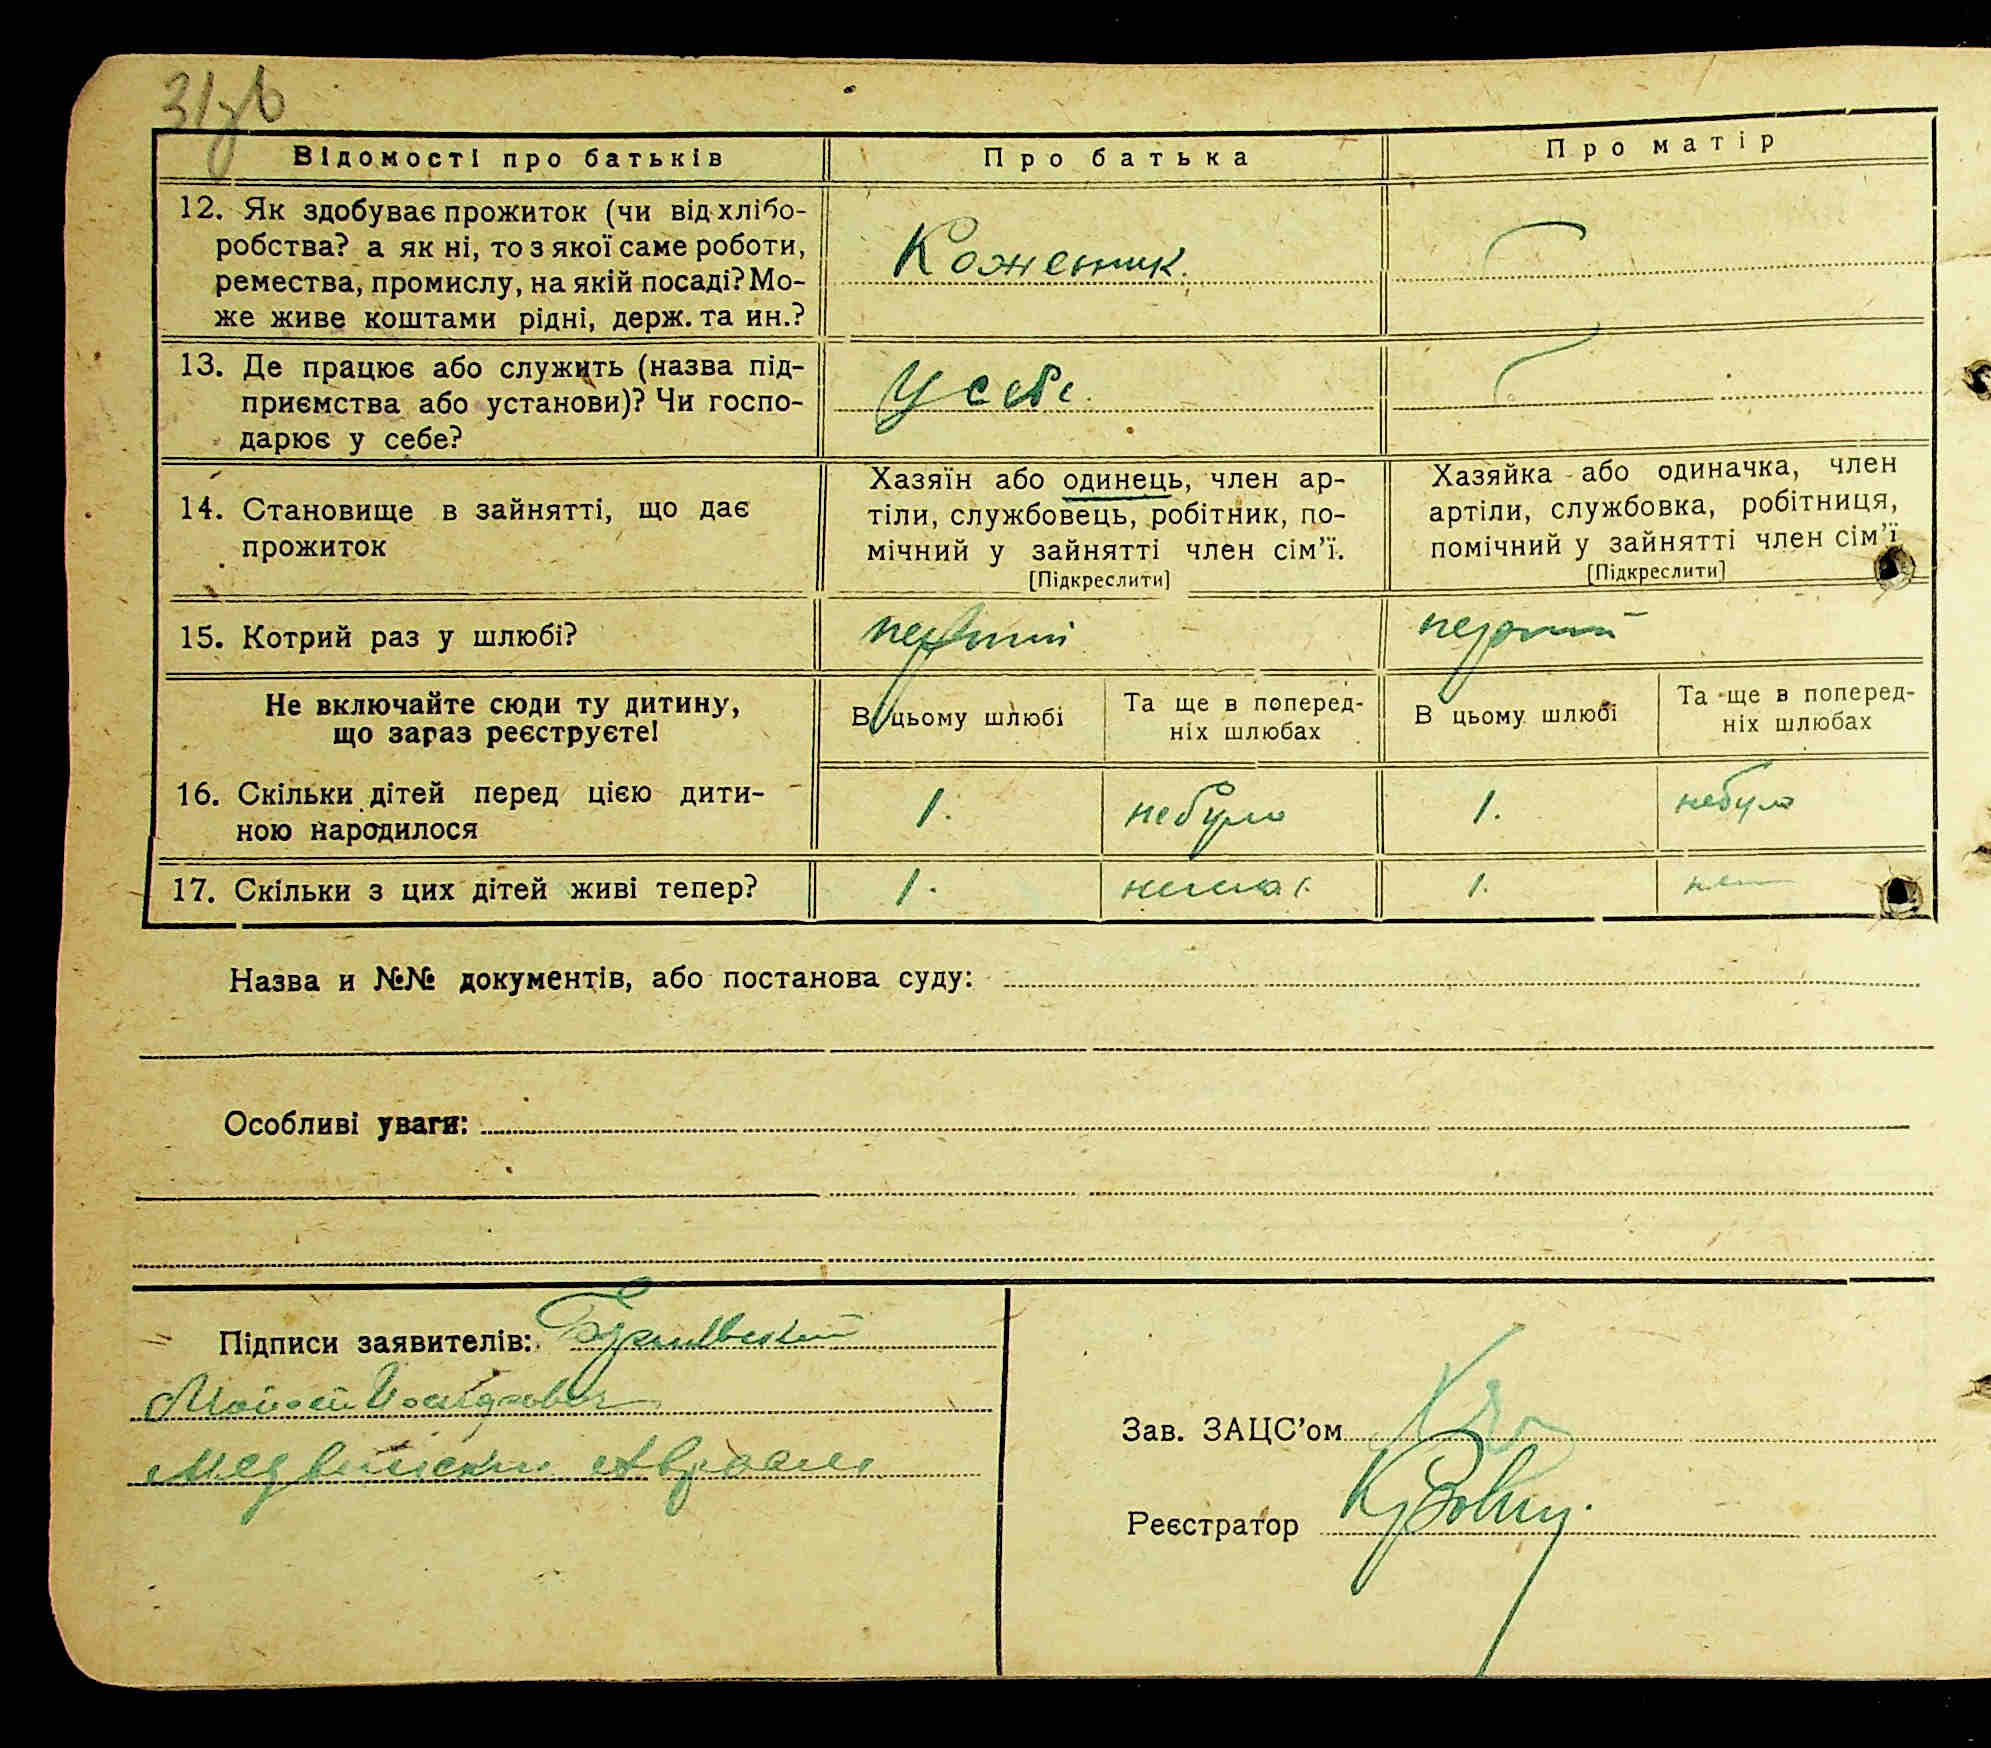 31зв
Відомості про батьків
Про батька
Про матір
12. Як здобуває прожиток (чи від хлібо-
робства? а як ні, то з якої саме роботи,
ремества, промислу, на якій посаді? Мо-
же живе коштами рідні, держ. та ин.?
Коженник.
13. Де працює або служить (назва під-
приємства або установи)? Чи госпо-
дарює у себе?
У себе.
14. Становище в зайнятті, що дає
прожиток
Хазяїн або одинець, член ар-
тіли, службовець, робітник, по-
мічний у зайнятті член сім'ї.
[Підкреслити]
Хазяйка або одиначка, член
артіли, службовка, робітниця,
помічний у зайнятті член сім'ї
[Підкреслити]
15. Котрий раз у шлюбі?
первий
первий
Не включайте сюди ту дитину,
що зараз реєструєте!
В цьому шлюбі
Та ще в поперед-
ніх шлюбах
В цьому шлюбі
Та ще в поперед-
ніх шлюбах
16. Скільки дітей перед цією дити-
ною народилося
1.
небуло
1.
небуло
17. Скільки з цих дітей живі тепер?
1.
1.
Назва и №№ документів, або постанова суду:
Особливі уваги:
Підписи заявителів:
Зав. ЗАЦС'ом
Реєстратор